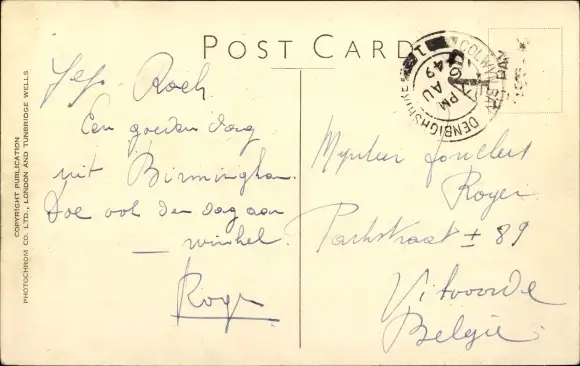 POST CARD
COLWYN BAY
DENBIGHSHIRE
PM
AU
49
COPYRIGHT PUBLICATION
PHOTOCHROM CO. LTD., LONDON AND TUNBRIDGE WELLS
Een goeden dag
uit Birmingham.
Doe ook den dag aan
winkel.
Roger
Mynheer
Royer
Parkstraat ± 89
Vilvoorde
België